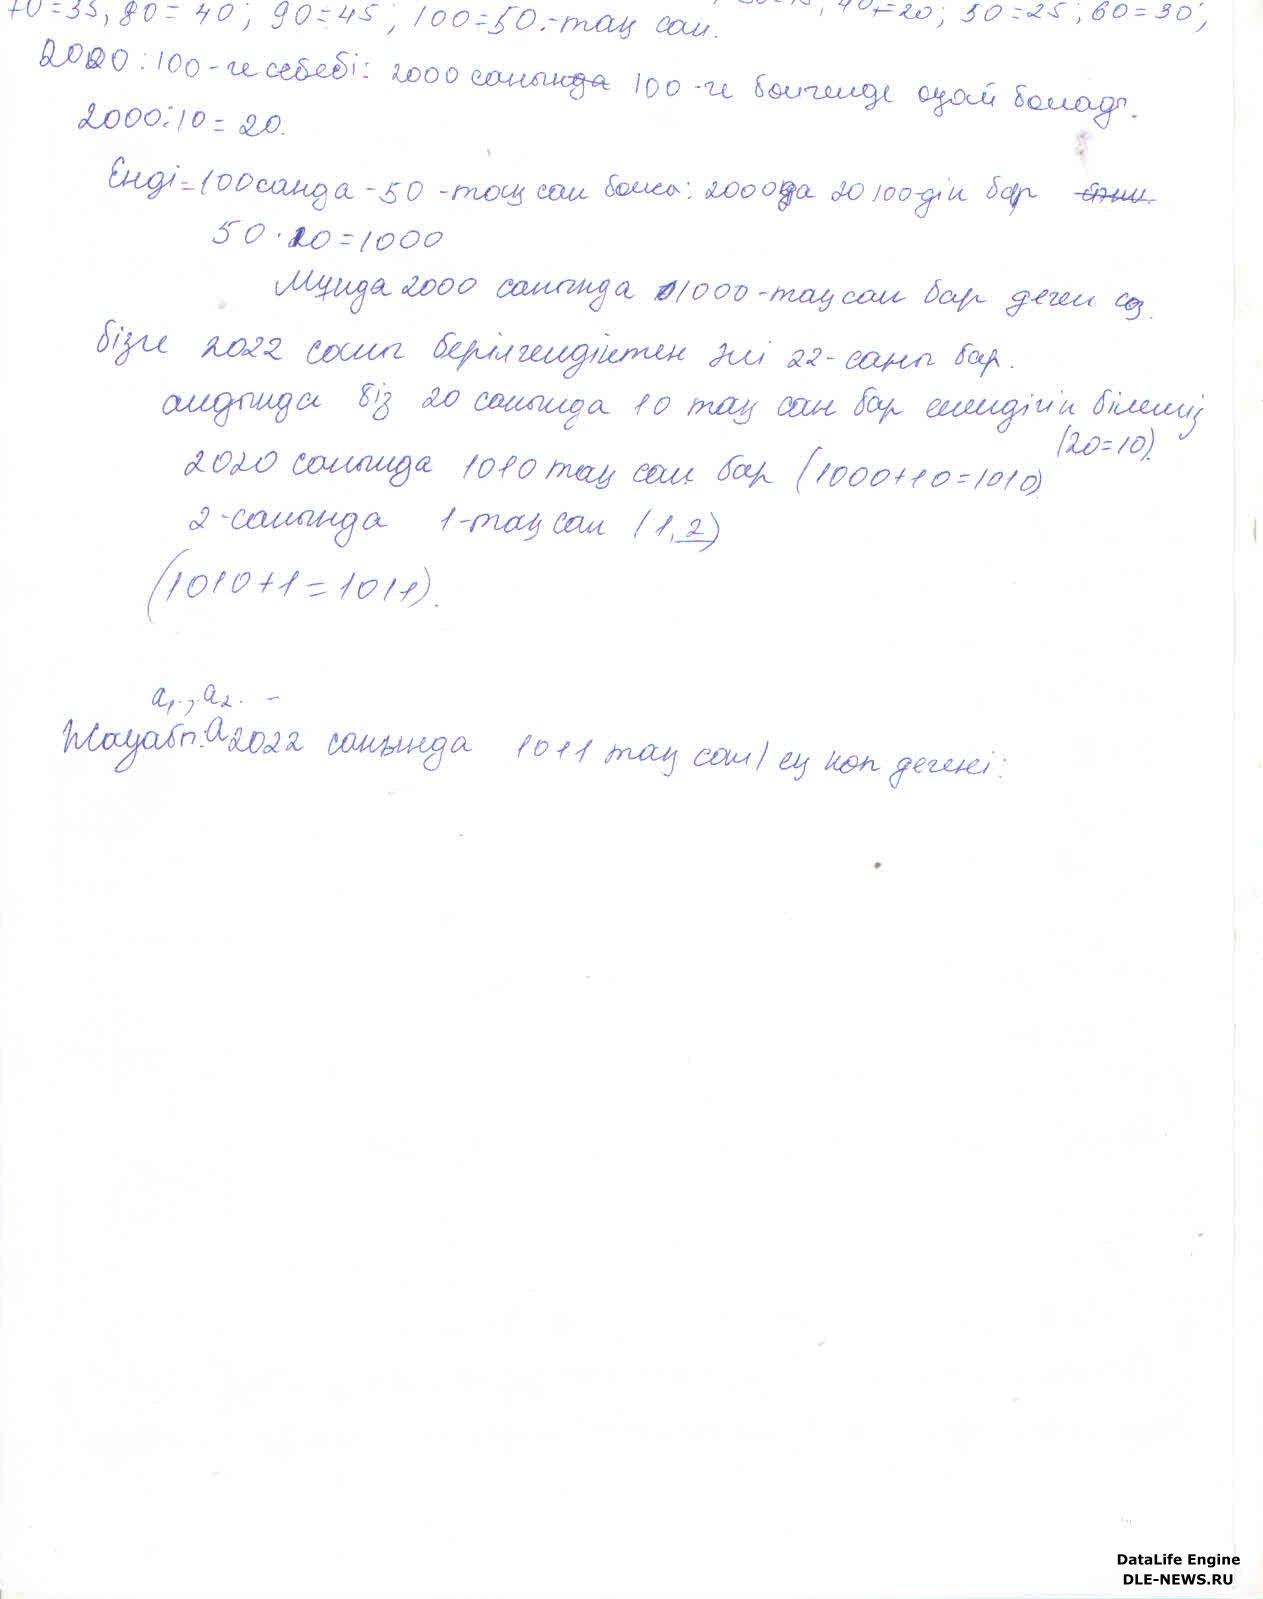 70=35, 80=40; 90=45; 100=50.-тақ сан. 40=20; 50=25; 60=30;
2020:100-ге себебі: 2000 санында 100-ге бөлгенде оңай болады.
2000:10=20.
Енді=100санда-50-тақ сан болса: 2000да 20 100-дің бар
50·20=1000
Мұнда 2000 санында 1000-тақ сан бар деген сөз.
бізге 2022 саны берілгендіктен әлі 22-саны бар.
алдында біз 20 санында 10 тақ сан бар екендігін білеміз
(20=10).
2020 санында 1010 тақ сан бар (1000+10=1010)
2-санында 1-тақ сан (1,2)
(1010+1=1011).
a₁., a₂. –
Жауабы: a2022 санында 1011 тақ сан) ең көп дегені:
DataLife Engine
DLE-NEWS.RU